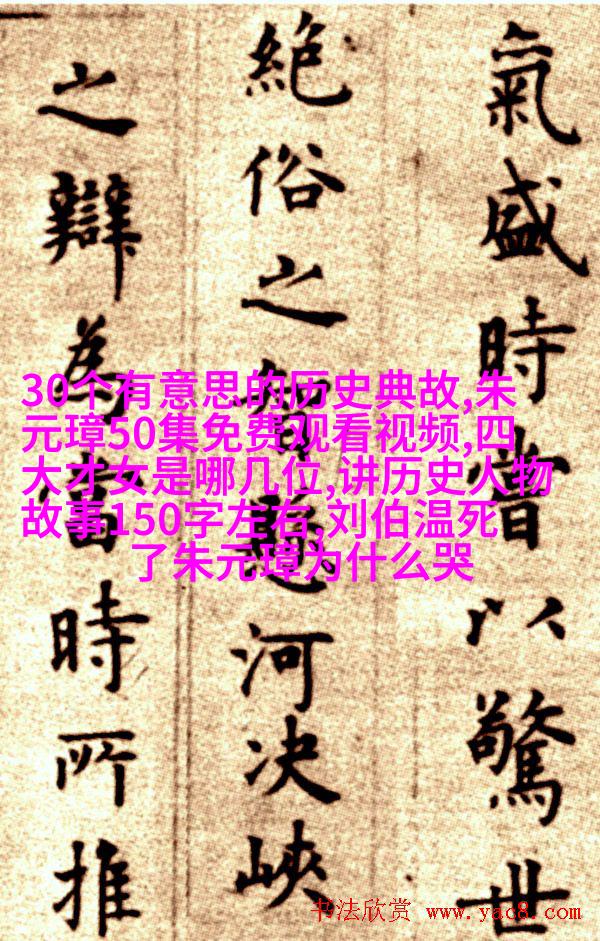 氣盛時嘗以驚世
絕俗之智趨河决峽
之辯為當時所推
30个有意思的历史典故,朱
元璋50集免费观看视频,四
大才女是哪几位,讲历史人物
故事150字左右,刘伯温死
了朱元璋为什么哭
书法欣赏 www.yac8.com